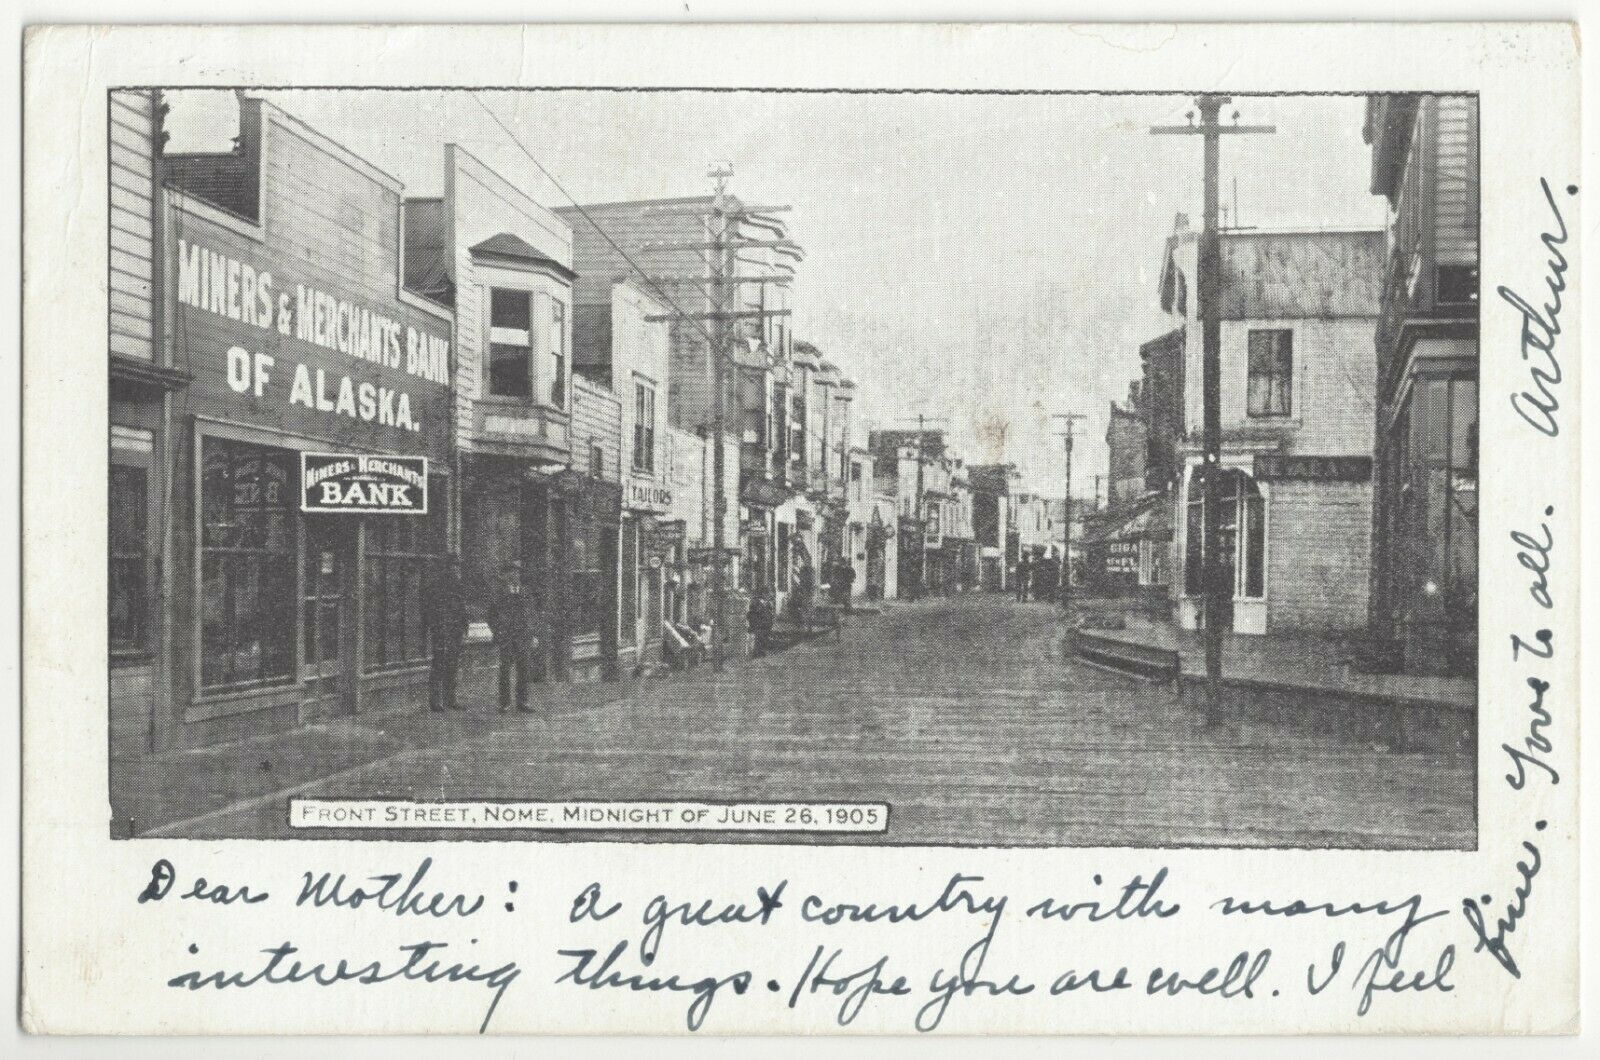 MINERS & MERCHANTS BANK
OF ALASKA.
MINERS & MERCHANTS
BANK
TAILORS
FRONT STREET, NOME, MIDNIGHT OF JUNE 26, 1905
Dear Mother: A great country with many
interesting things. Hope you are well. I feel
fine. Love to all. Arthur.